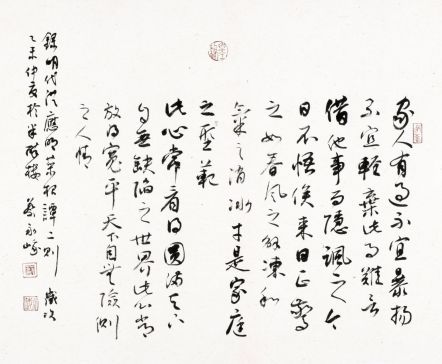 家人有過不宜暴揚
不宜輕棄此事難言
借他事而隱諷之今
日不悟俟來日正警
之如春風之解凍和
氣之消冰才是家庭
之型範
此心常看得圓滿天下
自無缺陷之世界此心常
放得寬平天下自無險側
之人情
錄明代洪應明菜根譚二則 歲次
乙未仲夏於半隱樓 蔡永